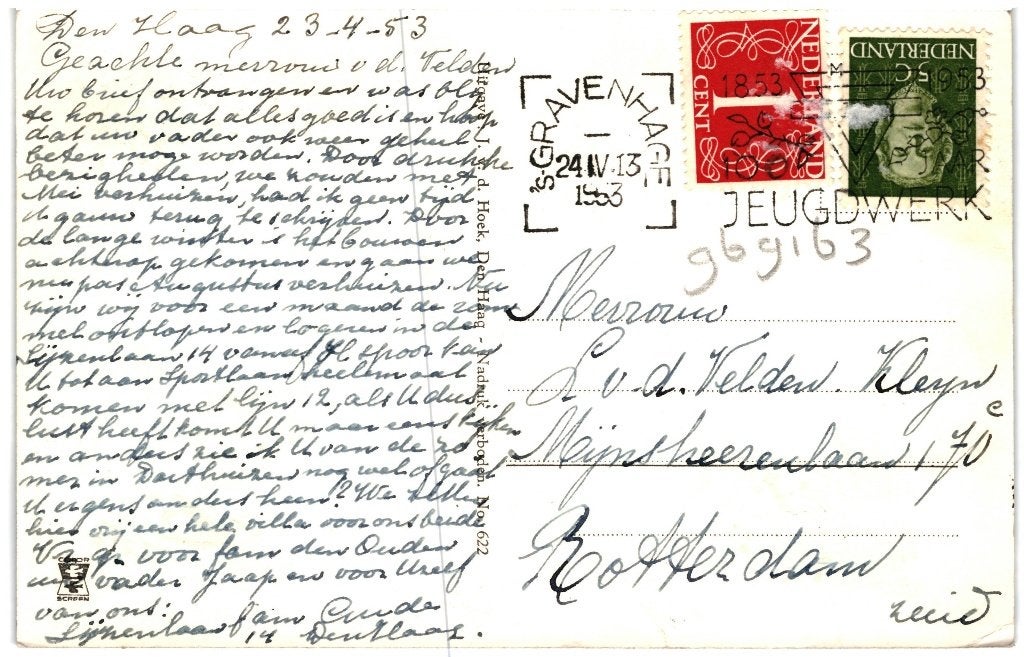 Den Haag 23-4-53
Geachte mevrouw v d. Velden
Uw brief ontvangen en was blij
te horen dat alles goed is en hoop
dat uw vader ook weer geheel
beter moge worden. Door drukke
bezigheden, we zouden met
Mei verhuizen, had ik geen tijd
U gauw terug te schrijven. Door
de lange winter is het bouwen
achterop gekomen en gaan we
nu pas Augustus verhuizen. Nu
zijn wij voor een maand de zon
met ontlopen en logeren in de
Sijzenlaan 14 vanaf H.S. spoor kan
U tot aan Sportlaan helemaal
komen met lijn 12, als U dus
lust heeft komt U maar eens kijken
en anders zie ik U van de zo
mer in Darthuizen nog wel of gaat
U ergens anders heen? We zitten
hier vrij een hele villa voor ons beide
V. gr. voor fam den Ouden
uw vader Jaap en voor Uzelf
van ons:
fam Oude
Sijzenlaan 14 Den Haag.
Uitgave J. v. d. Hoek, Den Haag - Nadruk verboden. No. 622
SCREEN
's-GRAVENHAGE
24.IV.13
1953
NEDERLAND
1
CENT
NEDERLAND
5 C
1853 M 1953
100 JAAR
JEUGDWERK
969163
Mevrouw
L v. d. Velden. Kleyn
Mijnsheerenlaan 170 c
Rotterdam
zuid